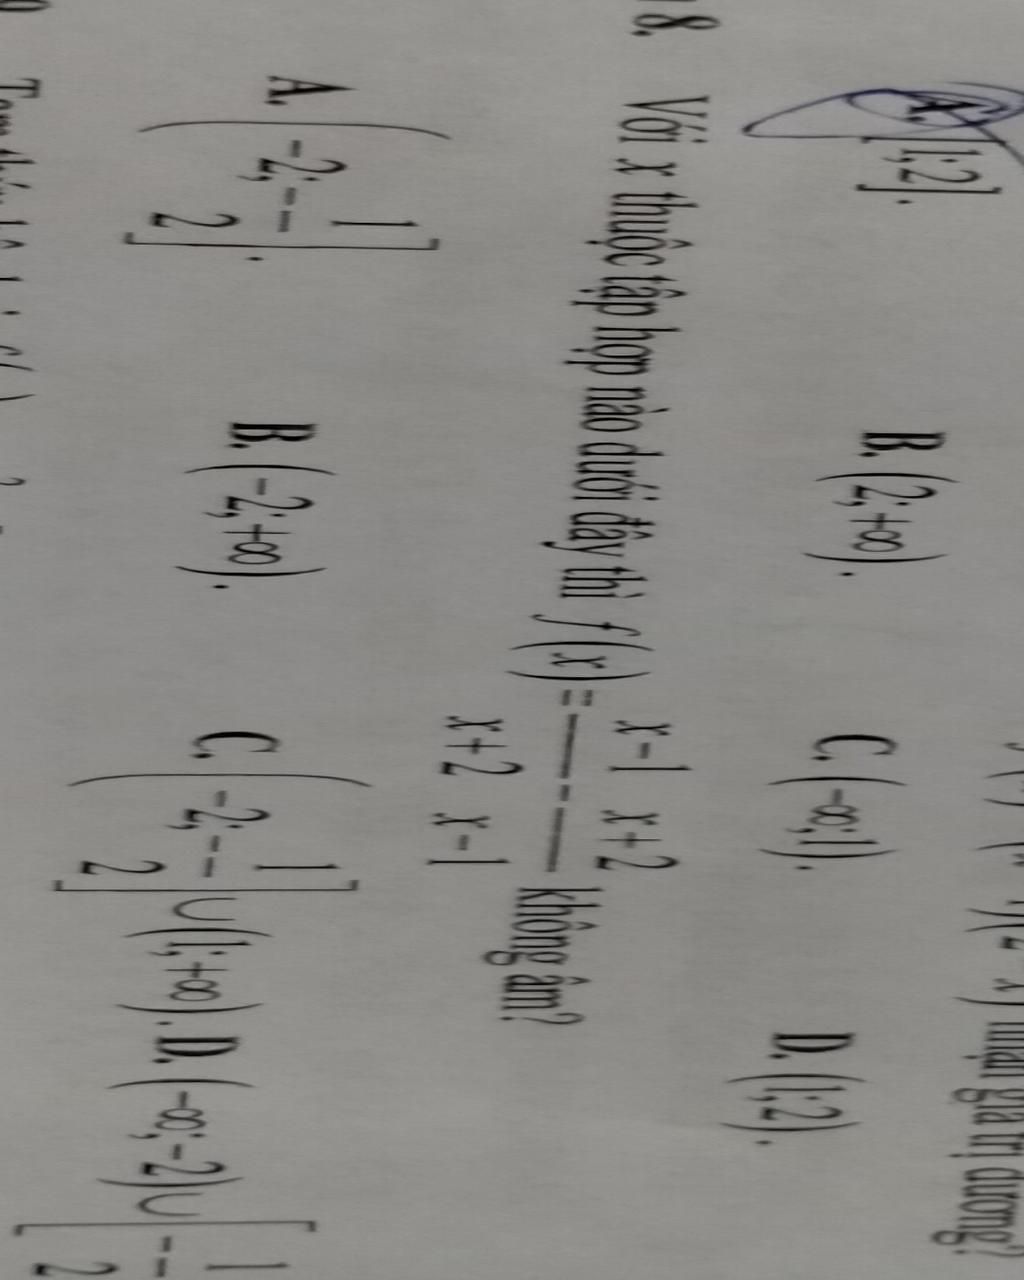 nhận giá trị dương?
A. [1;2]. B. (2;+∞). C. (−∞;1). D. (1;2).
8. Với x thuộc tập hợp nào dưới đây thì f(x) = \frac{x-1}{x+2} - \frac{x+2}{x-1} không âm?
A. \left(-2;-\frac{1}{2}\right]. B. (-2;+∞). C. \left(-2;-\frac{1}{2}\right]∪(1;+∞). D. (-∞;-2)∪\left[-\frac{1}{2}